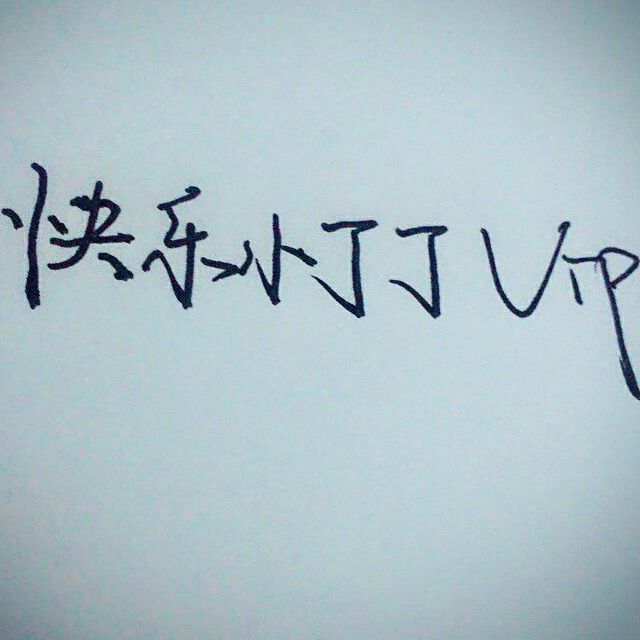 快乐小丁丁Vip